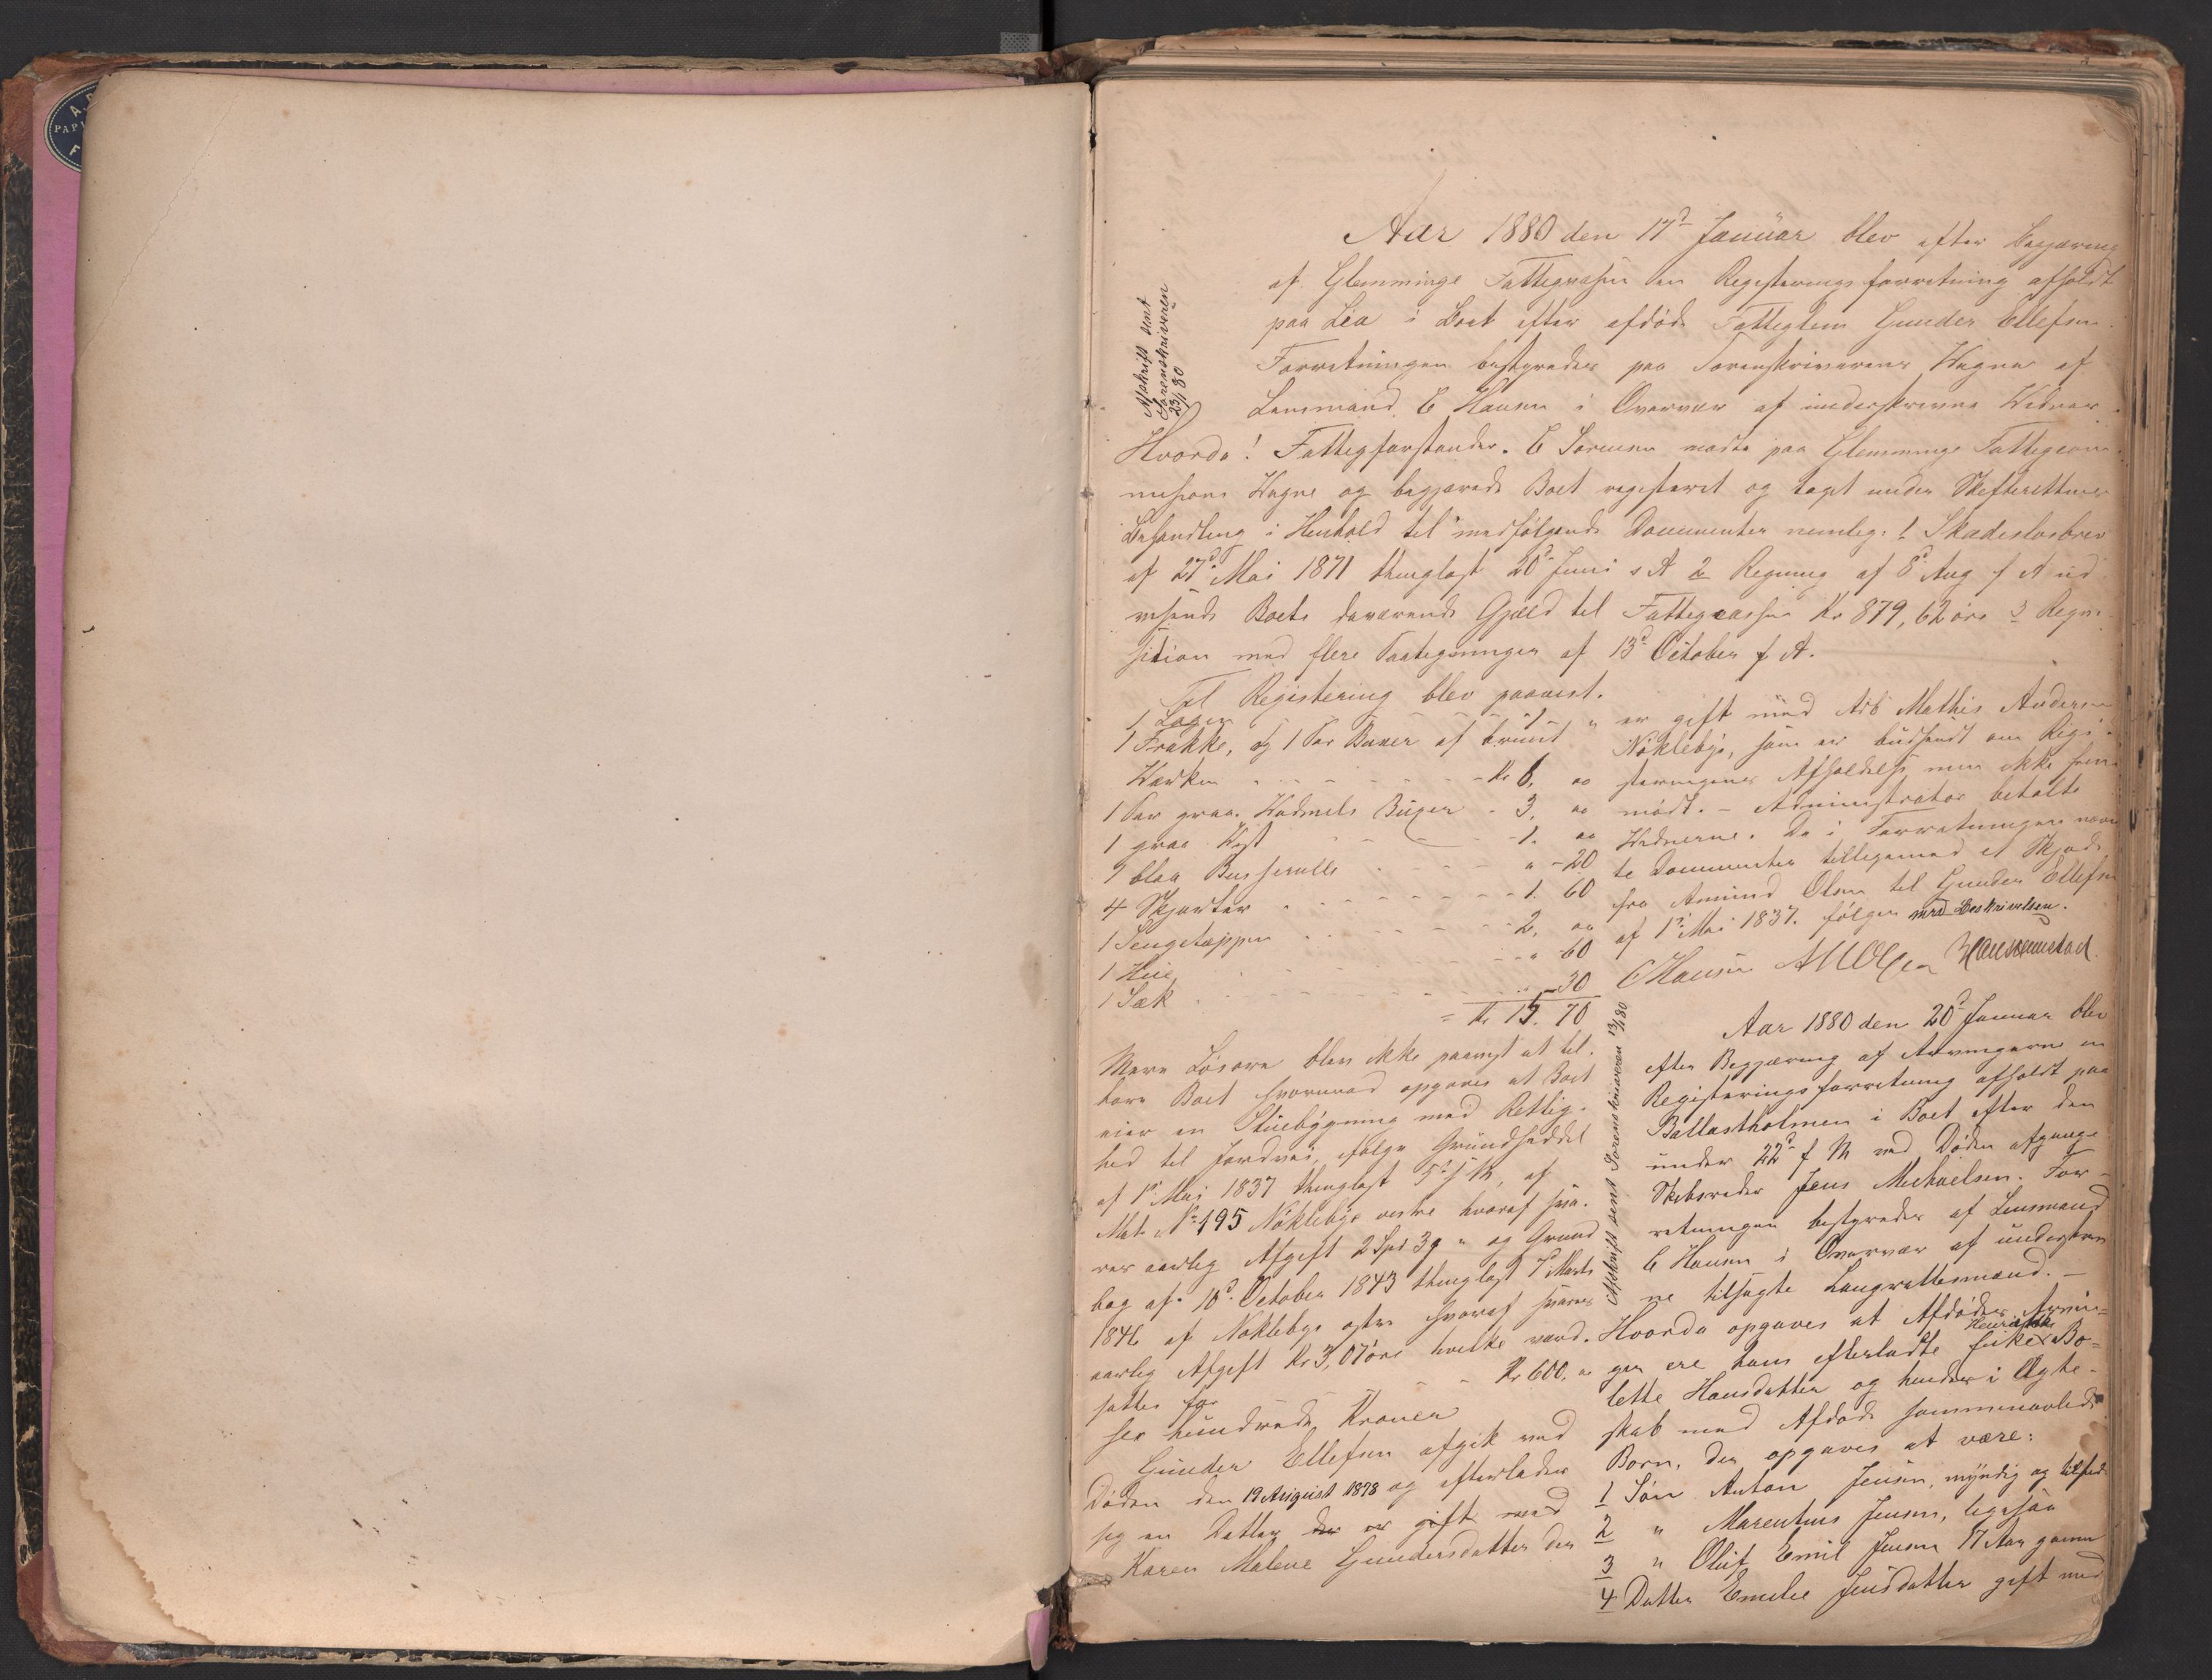 A.
PAP
F
Afskrift sent
Sorenskriveren
23/1 80
Aar 1880 den 17d Januar blev efter Begjæring
af Glemminge Fattigvæsen en Registreringsforretning afholdt
paa Lia i Boet efter afdøde Fattiglem Gunder Ellefsen.
Forretningen bestyredes paa Sorenskriverens Vegne af
Lensmand C Hansen i Overvær af underskrevne Vidner.
Hvorda! Fattigforstander C Sørensen mødte paa Glemminge Fattigcom-
misions Vegne og begjærede Boet registeret og taget under Skifterettens
Behandling i Henhold til medfølgende Documenter nemlig: 1 Skadesløsbrev
af 27d Mai 1871 thinglæst 20d Juni s A 2 Regning af 8d Aug f A ud-
visende Boets daværende Gjæld til Fattigcassen Kr 879,62 øre 3 Reqvi-
sition med flere Paategninger af 13d October f A.
Til Registering blev paavist.
1 Lagen 1 "
1 Frakke, og 1 Par Buxer af brunt
Værken Kr 6, 00
1 Par graa Vadmels Buxer 3, 00
1 graa Vest 1. 00
1 blaa Busserulle " 20
4 Skjorter 1. 60
1 Sengetæppe 2, 00
1 Hue " 60
1 Sæk 30
= Kr 15. 70
Mere Løsøre blev ikke paavist at til-
høre Boet hvorimod opgaves at Boet
eier en Stuebygning med Rettig-
hed til Jordvei, ifølge Grundseddel
af 1d Mai 1837 thinglæst 5d s M, af
Mat. No 195 Nøklebye vestre hvoraf sva-
res aarlig Afgift 2 Spd 3 " og Grund
bog af 10d October 1843 thinglæst 7d Marts
1846 af Nøklebye østre hvoraf svares
aarlig Afgift Kr 3,07 øre hvilke værd-
sættes for Kr 600. "
sex hundrede Kroner
Gunder Ellefsen afgik ved
Døden den 19 August 1878 og efterlader
sig en Datter der er gift med
Karen Malene Gundersdatter der
er gift med Arb Mathis Andersen
Nøklebye, som er budsendt om Regi-
steringens Afholdelse men ikke frem-
mødt. – Administrator betalte
Vidnerne. De i Forretningen nævn
te Documenter tilligemed et Skjøde
fra Amund Olsen til Gunder Ellefsen
af 1d Mai 1837 følger med Beskrivelsen.
C Hansen
Afskrift sent Sorenskriveren 13/2 80
Aar 1880 den 20d Januar blev
efter Begjæring af Arvingerne en
Registeringsforretning afholdt paa
Ballastholmen i Boet efter den
under 22d f M ved Døden afgangne
Skibsreder Jens Michaelsen. For-
retningen bestyredes af Lensmand
C Hansen i Overvær af underskrev
ne tilsagte Laugrettesmænd. –
Hvorda opgaves at Afdødes Arvin-
ger ere hans efterladte Enke Henriette Bo-
lette Hansdatter og hendes i Ægte-
skab med Afdøde sammenavlede
Børn, der opgaves at være:
1 Søn Anton Jensen, myndig og tilsted
2 " Marentius Jensen, ligesaa
3 " Oluf Emil Jensen 17 Aar gamm
4 Datter Emilie Jensdatter gift med